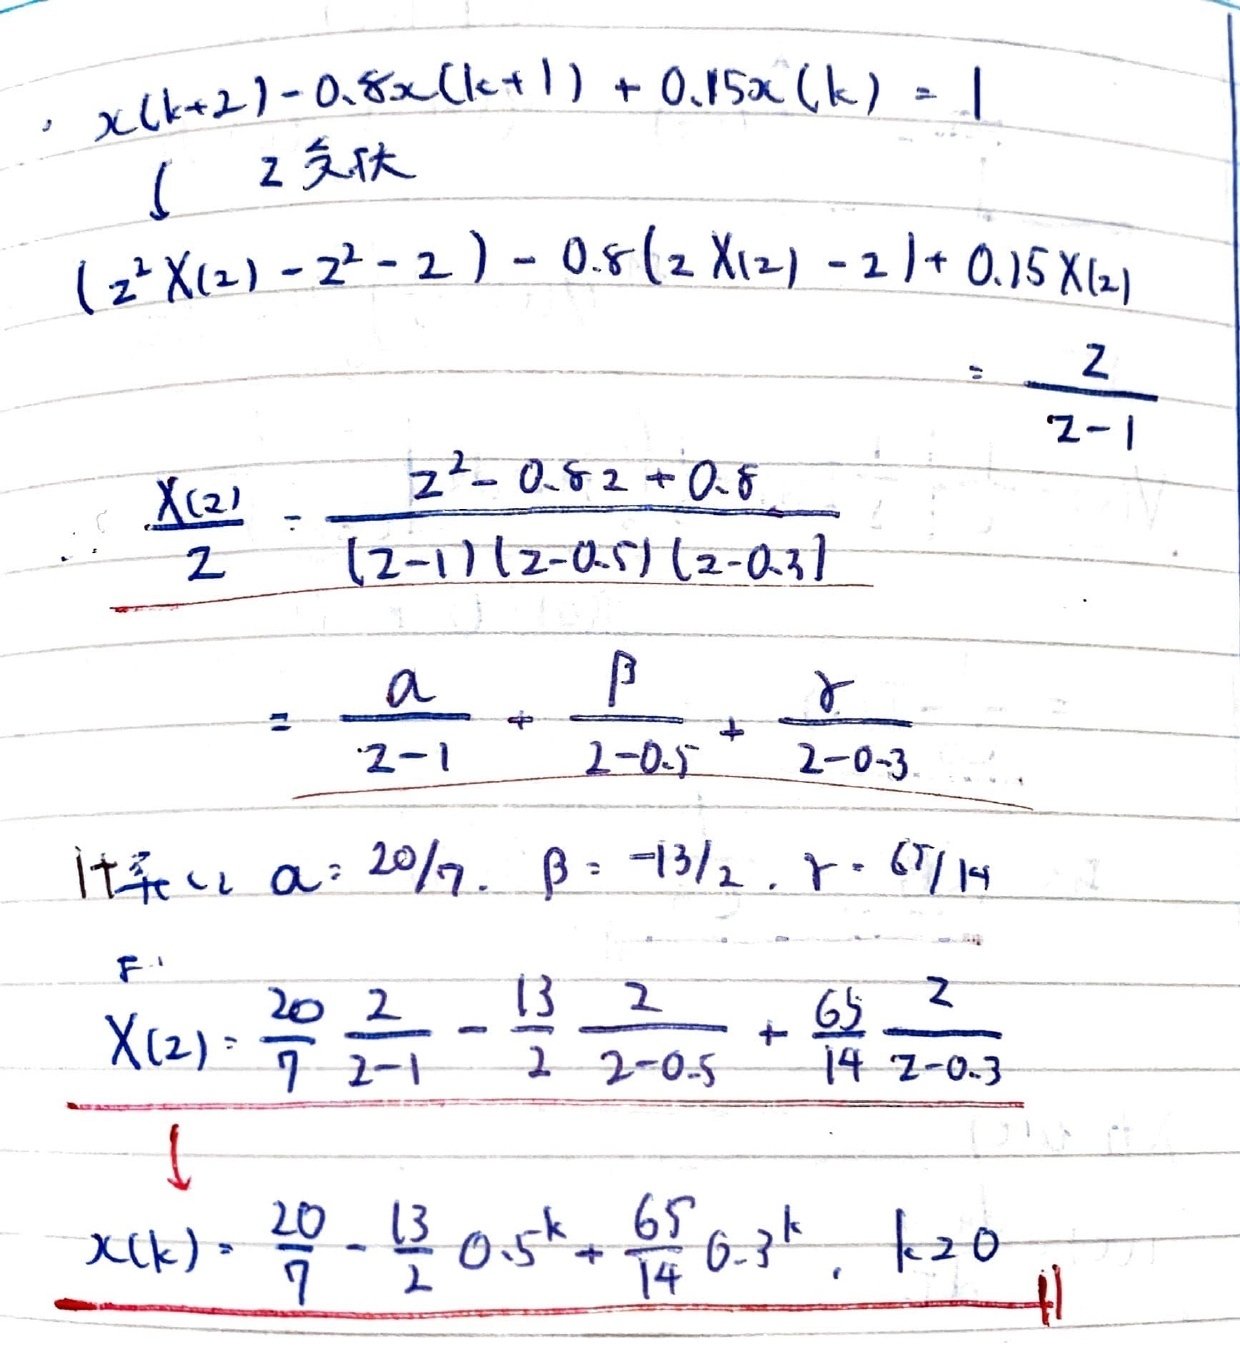 x(k+2) - 0.8x(k+1) + 0.15x(k) = 1
↓ z変換
(z² X(z) - z² - z) - 0.8(z X(z) - z) + 0.15 X(z)
= z/(z-1)
∴ X(z)/z = (z² - 0.8z + 0.8)/((z-1)(z-0.5)(z-0.3))
= α/(z-1) + β/(z-0.5) + γ/(z-0.3)
α = 20/7. β = -13/2. γ = 65/14
X(z) = 20/7 z/(z-1) - 13/2 z/(z-0.5) + 65/14 z/(z-0.3)
↓
x(k) = 20/7 - 13/2 0.5^k + 65/14 0.3^k, k≥0